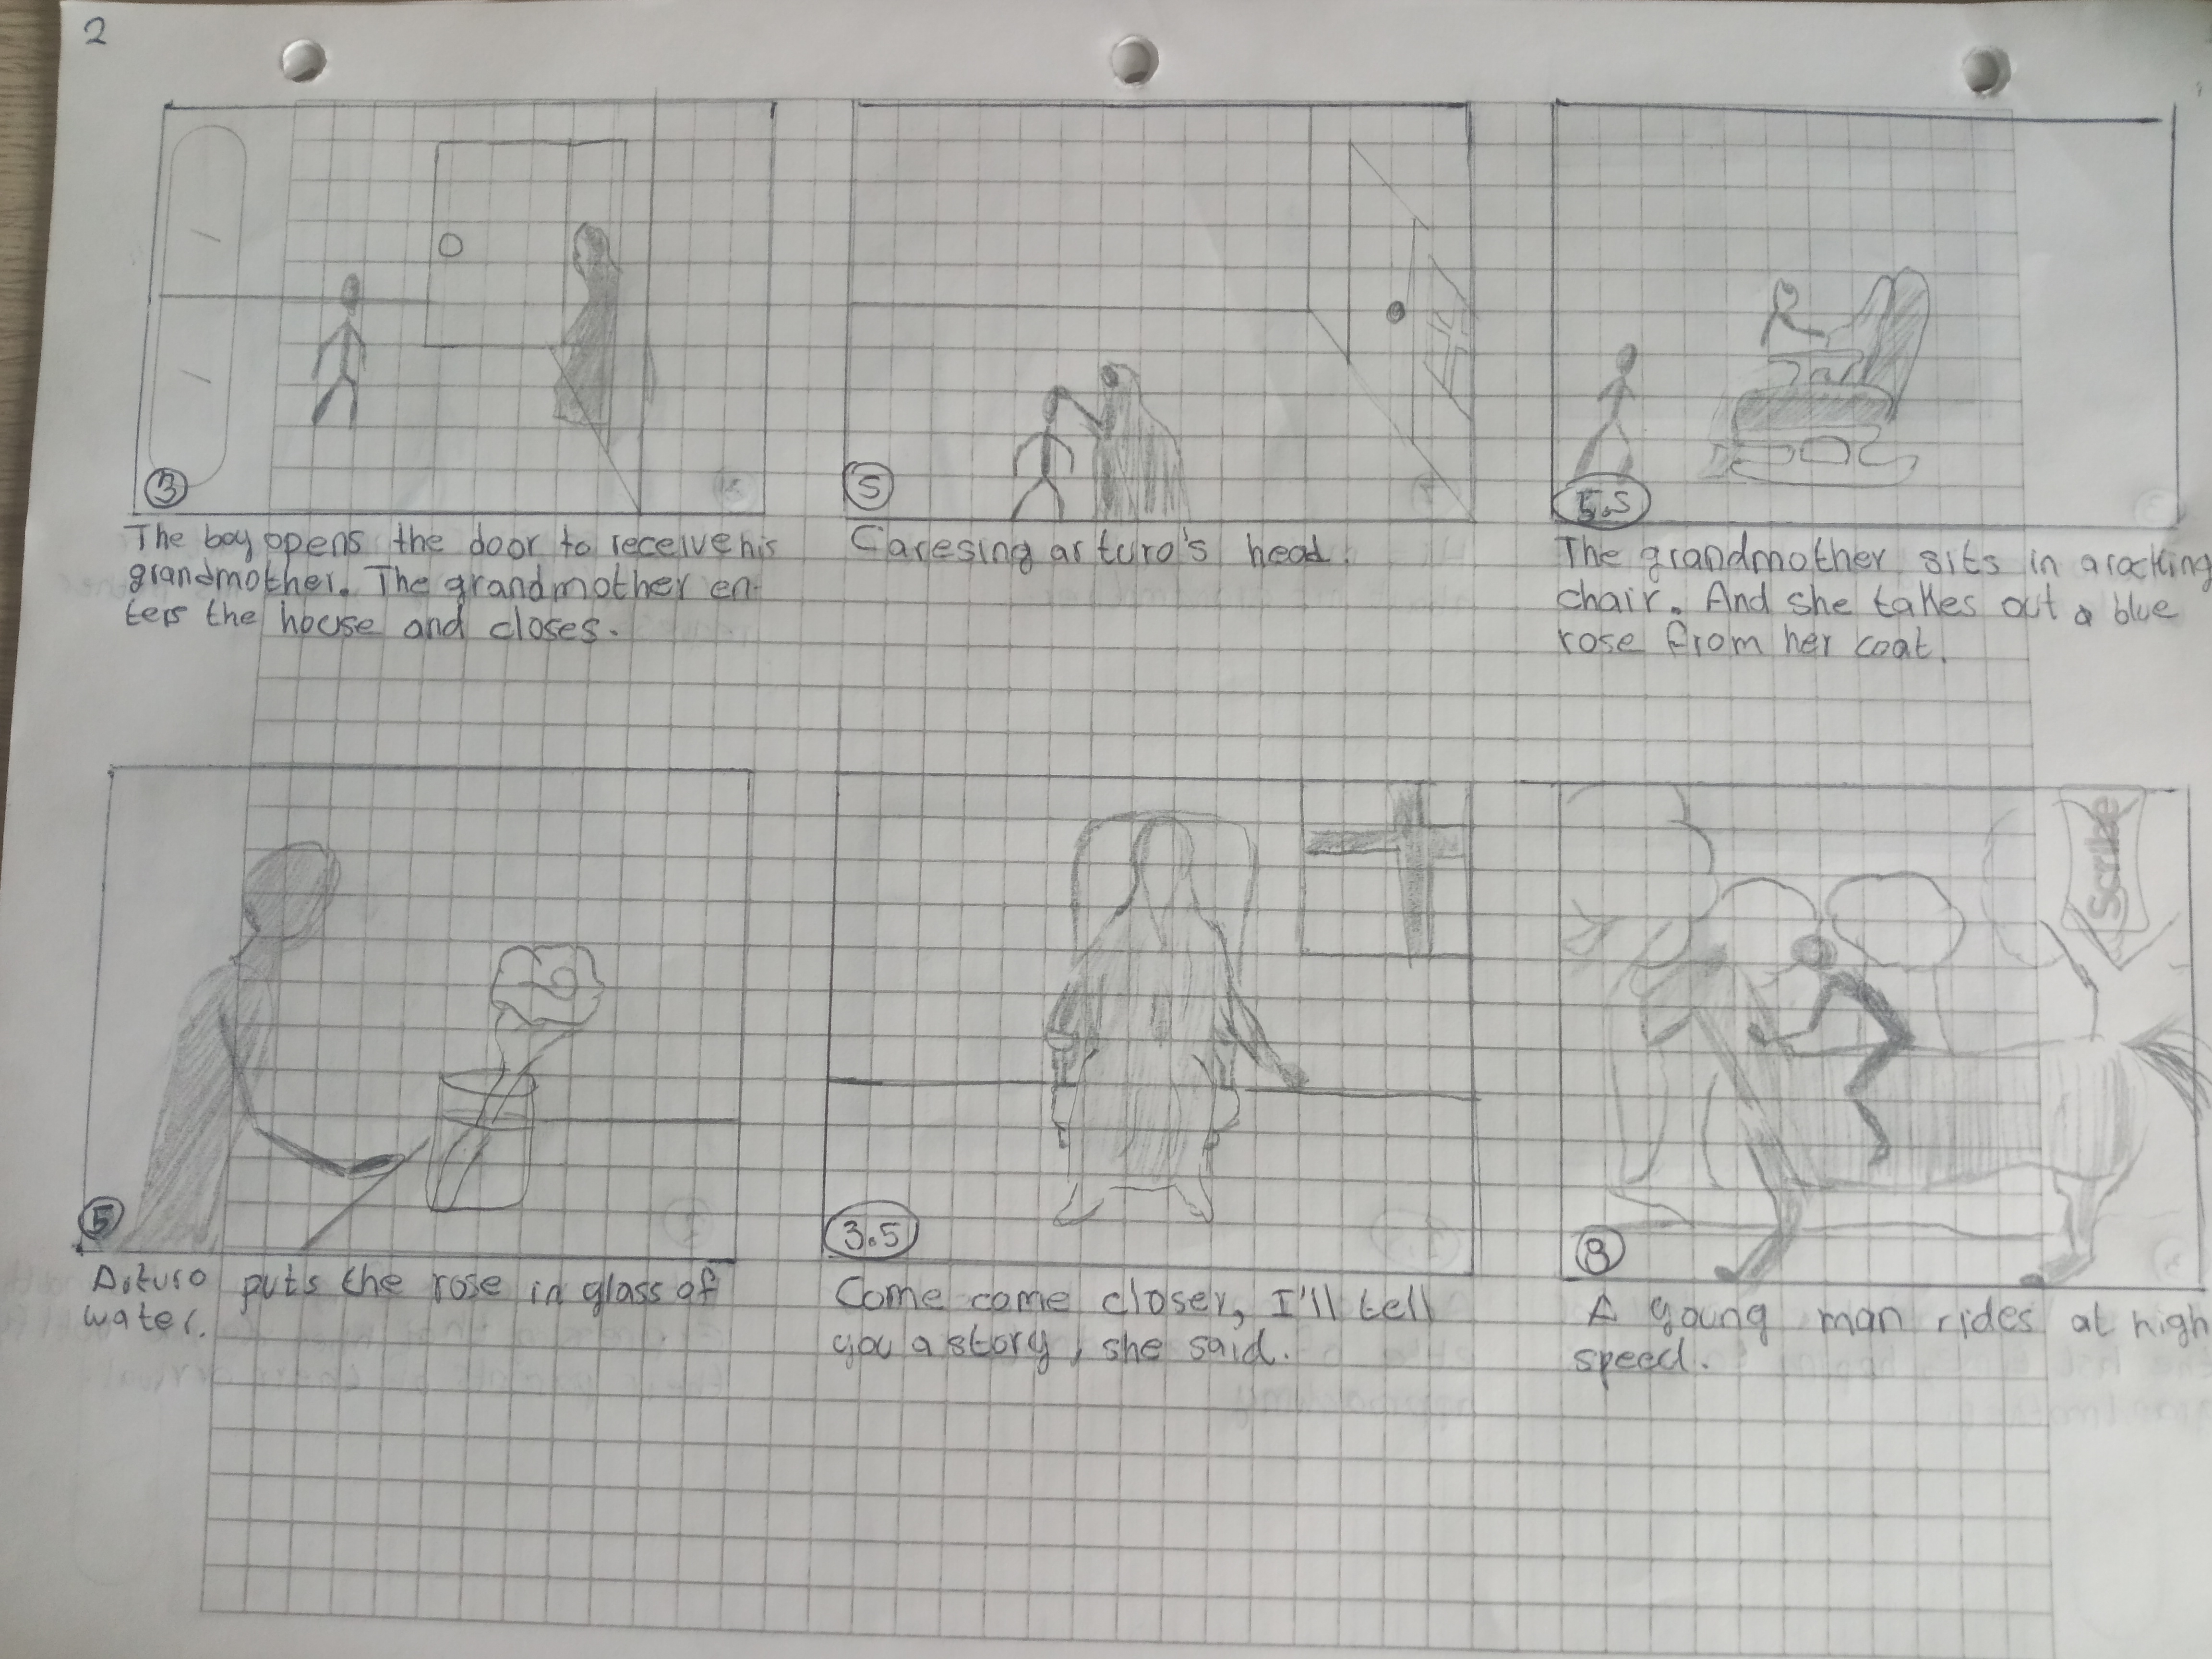 2
3
The boy opens the door to receive his
grandmother. The grandmother en-
ters the house and closes.
5
Caresing arturo's head.
5.5
The grandmother sits in a rocking
chair. And she takes out a blue
rose from her coat.
5
Arturo puts the rose in glass of
water.
3.5
Come come closer, I'll tell
you a story, she said.
Scribe
8
A young man rides at high
speed.